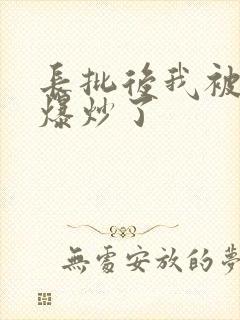 長批後我被
爆炒了
無處安放的夢